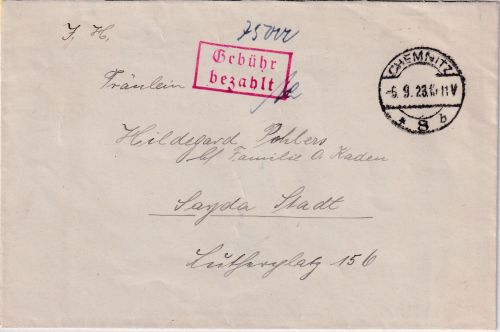 J. H.
75000
Gebühr
bezahlt
CHEMNITZ
-6.9.23.10-11V
* 8 b
Fräulein
Hildegard Pohlers
b/ Familie O. Kaden
Sayda Stadt
Lutherplatz 156